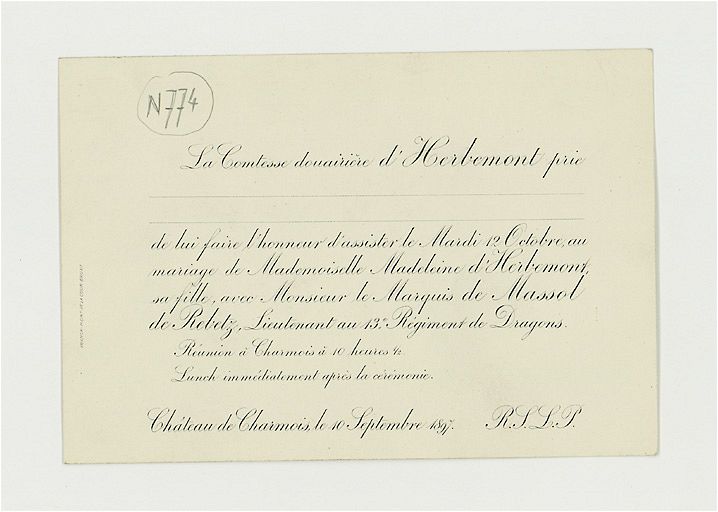 N774
La Comtesse douairière d'Herbemont prie
de lui faire l'honneur d'assister le Mardi 12 Octobre, au
mariage de Mademoiselle Madeleine d'Herbemont,
sa fille, avec Monsieur le Marquis de Massol
de Rebetz, Lieutenant au 13e Régiment de Dragons.
Réunion à Charmois à 10 heures ½
Lunch immédiatement après la cérémonie.
Château de Charmois, le 10 Septembre 1897. R.S.L.P.